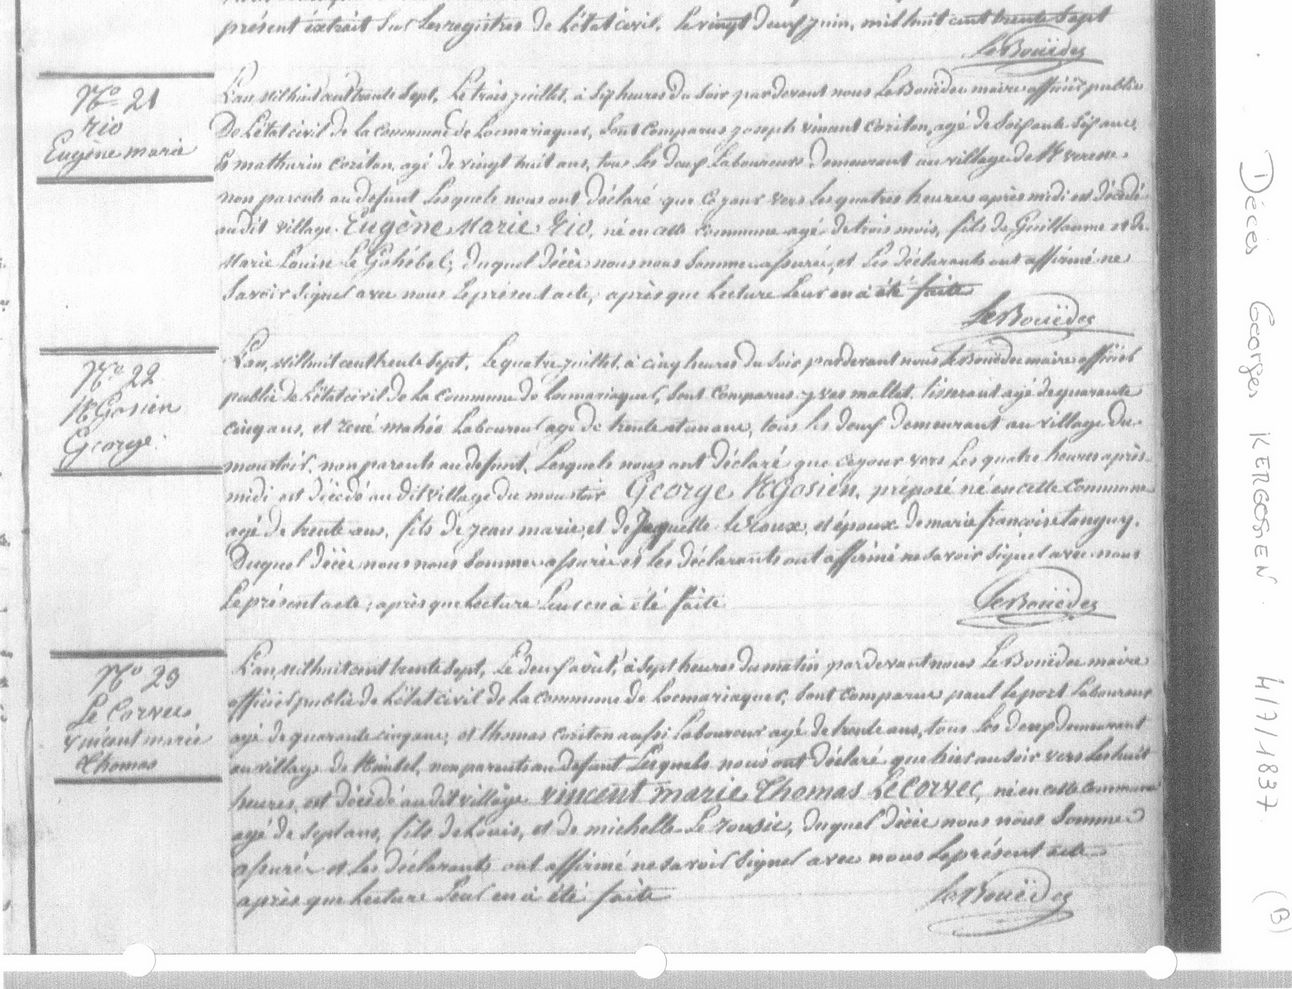 présent extrait sur les registres de l'état civil. Le vingt deux juin, mil huit cent trente sept
Le Bouëdec
N.o 21
rio
Eugène marie
L'an, mil huit cent trente sept, Le trois juillet, à six heures du soir par devant nous Le Bouëdec maire officier public
De L'état civil de la commune de Locmariaquer, sont comparus joseph vincent coriton, agé de soixante six ans,
Et mathurin coriton, agé de vingt huit ans, tous les deux Laboureurs demeurant au village de
non parents au defunt Lesquels nous ont déclaré que ce jour vers les quatres heures après midi est décédé
au dit village Eugène Marie Rio, né en cette commune agé de trois mois, fils de Guillaume et de
Marie Louise Le Gohébel, duquel décès nous nous sommes assurés, et Les déclarants ont affirmé ne
savoir signer avec nous Le présent acte, après que Lecture Leur en a été faite
Le Bouëdec
N.o 22
KGosien
George
L'an, mil huit cent trente sept, Le quatre juillet, à cinq heures du soir par devant nous Le Bouëdec maire officier
public de L'état civil de La commune de Locmariaquer, sont comparus yves mallet, tisserand agé de quarante
cinq ans, et rené mahéo Laboureur agé de trente et un ans, tous les deux demeurant au village du
moustoir, non parents au defunt, Lesquels nous ont déclaré que ce jour vers Les quatre heures après
midi est décédé au dit village du moustoir George KGosien, préposé né en cette commune
agé de trente ans, fils de jean marie, et de Jaquette Le roux, et époux de marie francoise tanguy.
Duquel décès nous nous sommes assurés et les déclarants ont affirmé ne savoir signer avec nous
Le présent acte, après que Lecture Leur en à été faite
Le Bouëdec
N.o 23
Le Corvec
vincent marie
Thomas
L'an, mil huit cent trente sept, Le deux août, à sept heures du matin par devant nous Le Bouëdec maire
officier public de L'état civil de la commune de Locmariaquer, sont comparus paul Le port Laboureur
agé de quarante cinq ans, et thomas coriton aussi Laboureur agé de trente ans, tous Les deux demeurant
au village de non parents au defunt Lesquels nous ont déclaré que hier au soir vers Les huit
heures, est décédé au dit village vincent marie Thomas Le Corvec, né en cette commune
agé de sept ans, fils de Louis, et de michelle Le rousic, duquel décès nous nous sommes
assurés et Les déclarants ont affirmé ne savoir signer avec nous Le présent acte
après que Lecture Leur en à été faite
Le Bouëdec
① Décès Georges KERGOSIEN 4/7/1837 (B)